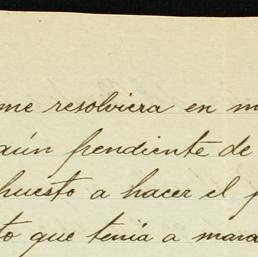 me resolviera en m
aún pendiente de
puesto a hacer el p
to que tenia a mara